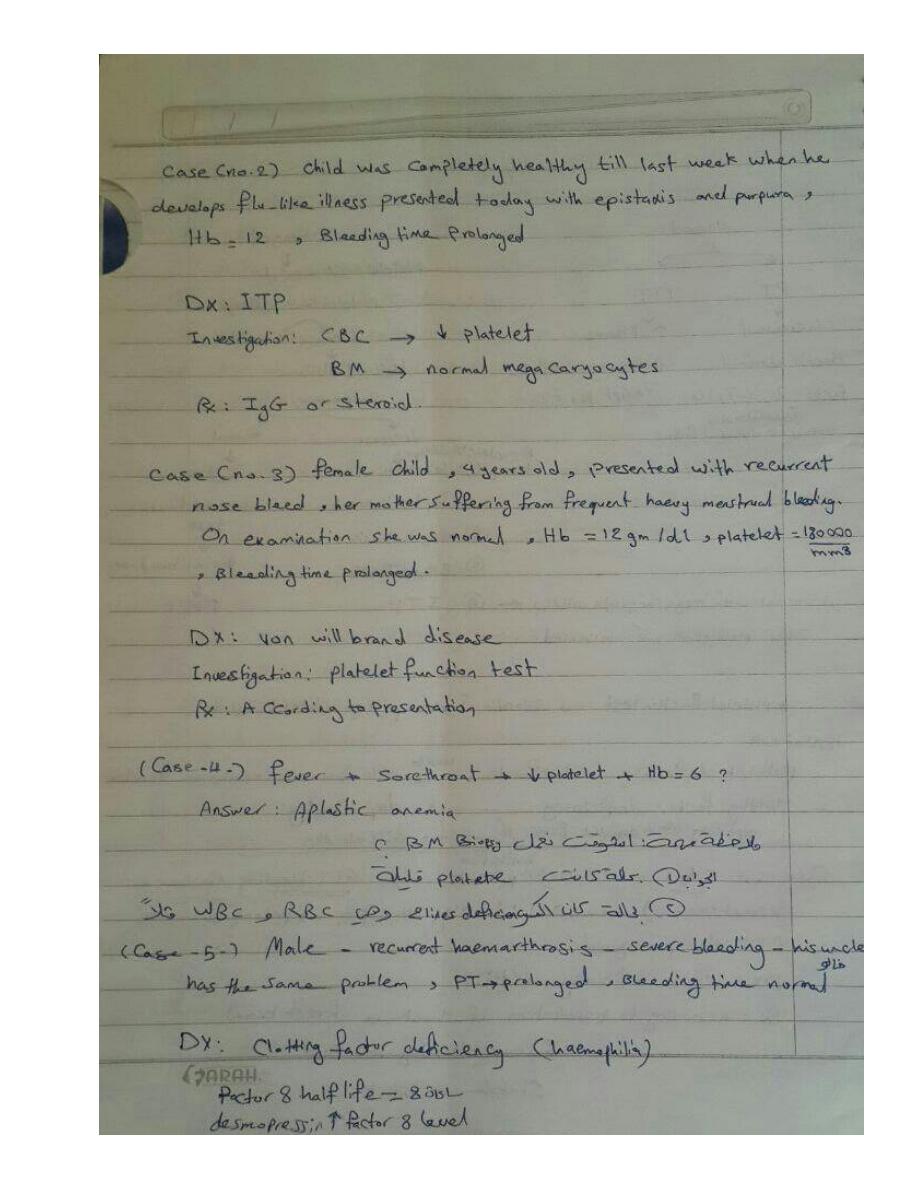 Case (no.2) child was completely healthy till last week when he
develops flu-like illness presented today with epistaxis and purpura ,
Hb = 12 , Bleeding time Prolonged
DX: ITP
Investigation: CBC → ↓ platelet
BM → normal megacaryocytes
Rx: IgG or steroid.
Case (no.3) female child , 4 years old , presented with recurrent
nose bleed , her mother suffering from frequent haevy menstrual bleeding.
On examination she was normal , Hb = 12 gm/dl , platelet = 180000/mm3
, Bleeding time prolonged.
DX: von will brand disease
Investigation: platelet function test
Rx: According to presentation
(Case -4-) fever + Sorethroat + ↓ platelet + Hb = 6 ?
Answer: Aplastic anemia
ملاحظة مهمة: امتى نعمل BM Biopsy ؟
الجواب ① بحالة كانت platelete قليلة
② بحالة كان الـ 2 lines deficiency وهي RBC و WBC مثلاً
(Case -5-) Male - recurrent haemarthrosis - severe bleeding - his uncle
خالو
has the same problem , PT → prolonged , Bleeding time normal
DX: Clotting factor deficiency (haemophilia)
SARAH.
factor 8 half life = 8
desmopressin ↑ factor 8 level